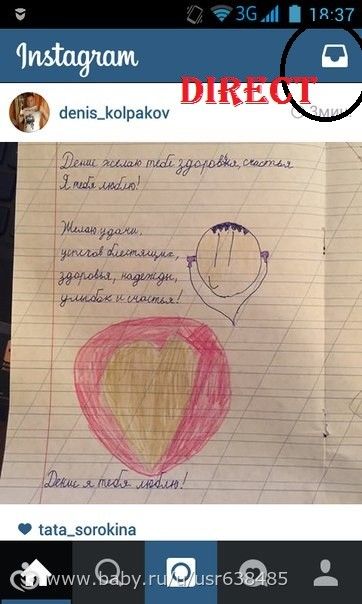 3G 18:37
Instagram
DIRECT
denis_kolpakov
3мин
Денис желаю тебе здоровья, счастья
Я тебя люблю!
Желаю удачи,
успехов блестящих,
здоровья, надежды,
улыбок и счастья!
Денис я тебя люблю!
tata_sorokina
www.baby.ru/u/usr638485